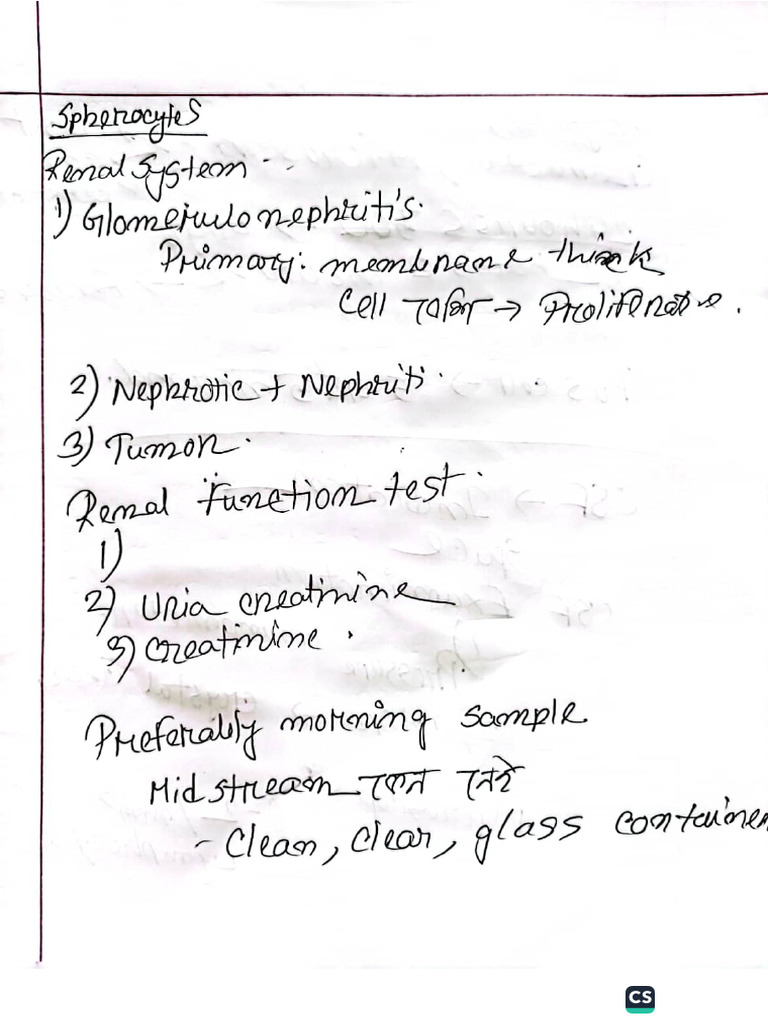 Spherocytes
Renal System
1) Glomerulonephritis.
Primary: membrane think
Cell → Proliferative.
2) Nephrotic + Nephriti.
3) Tumor.
Renal function test.
1)
2) Uria creatinine
3) Creatinine.
Preferably morning sample
Midstream কেন নেই
- Clean, clear, glass container
CS